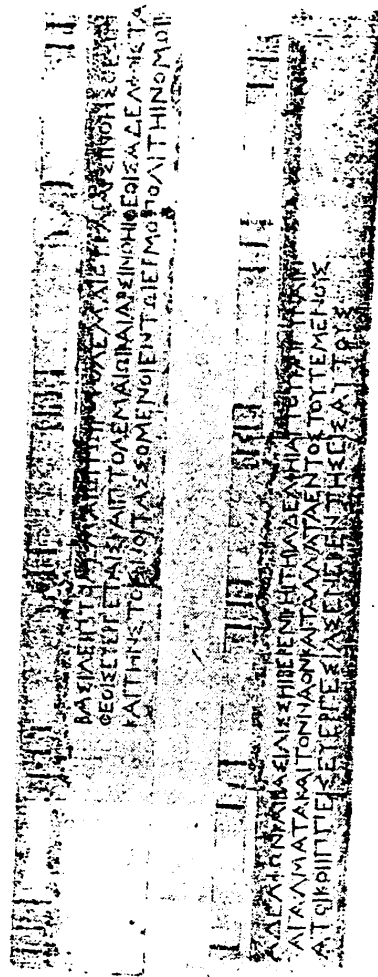 ΒΑΣΙΛΕΙΠΤΟΛΕΜΑΙΩΙΤΩΙΠΤΟΛΕΜΑΙΟΥΚΑΙΑΡΣΙΝΟΗΣΘΕΩΝ
ΘΕΟΙΣΕΥΕΡΓΕΤΑΙΣΚΑΙΠΤΟΛΕΜΑΙΩΙΚΑΙΑΡΣΙΝΟΗΙΘΕΟΙΣΑΔΕΛΦΟΙΣΤΑ
ΚΑΙΤΗΝΣΤΟΑΝΟΙΤΑΣΣΟΜΕΝΟΙΕΝΤΩΙΕΡΜΟΠΟΛΙΤΗΙΝΟΜΩΙ
ΑΔΕΛΦΩΝΚΑΙΒΑΣΙΛΙΣΣΗΙΒΕΡΕΝΙΚΗΙΤΗΙΑΔΕΛΦΗΙΑΥΤΟΥΚΑΙΓΥΝΑΙΚΙ
ΑΓΑΛΜΑΤΑΚΑΙΤΟΝΝΑΟΝΚΑΙΤΑΛΛΑΤΑΕΝΤΟΣΤΟΥΤΕΜΕΝΟΥΣ
ΚΑΤΟΙΚΟΙΙΠΠΕΙΣΕΥΕΡΓΕΣΙΑΣΕΝΕΚΕΝΤΗΣΕΙΣΑΥΤΟΥΣ